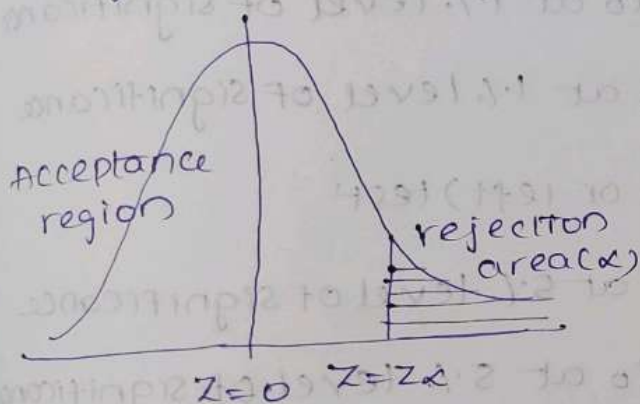 Acceptance
region
rejection
area(α)
Z=0 Z=Zα